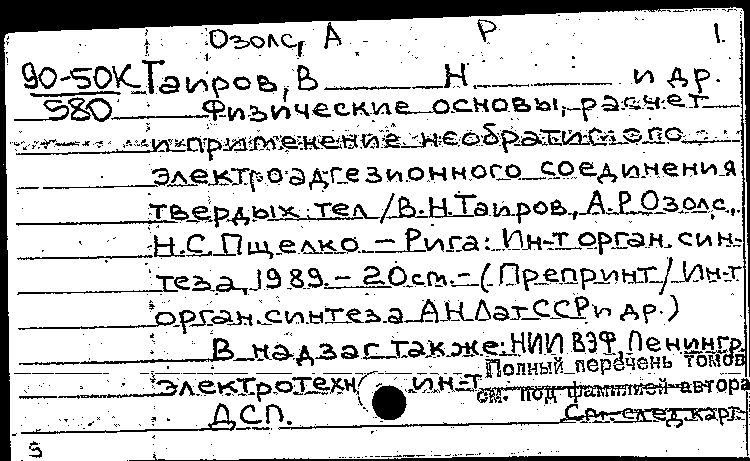 Озолс, А Р 1.
90-50К Таиров, В Н и др.
580 Физические основы, расчет
и применение необратимого
электроадгезионного соединения
твердых тел / В.Н.Таиров, А.Р.Озолс,
Н.С.Пщелко – Рига: Ин-т орган. син-
теза, 1989. – 20 ст. – (Препринт / Ин-т
орган. синтеза АН ЛатССР и др.)
В надзаг также: НИИ ВЭФ, Ленингр
электротехн ин-т
Полный перечень томов
см. под фамилией автора
ДСП. См. след карт.
S